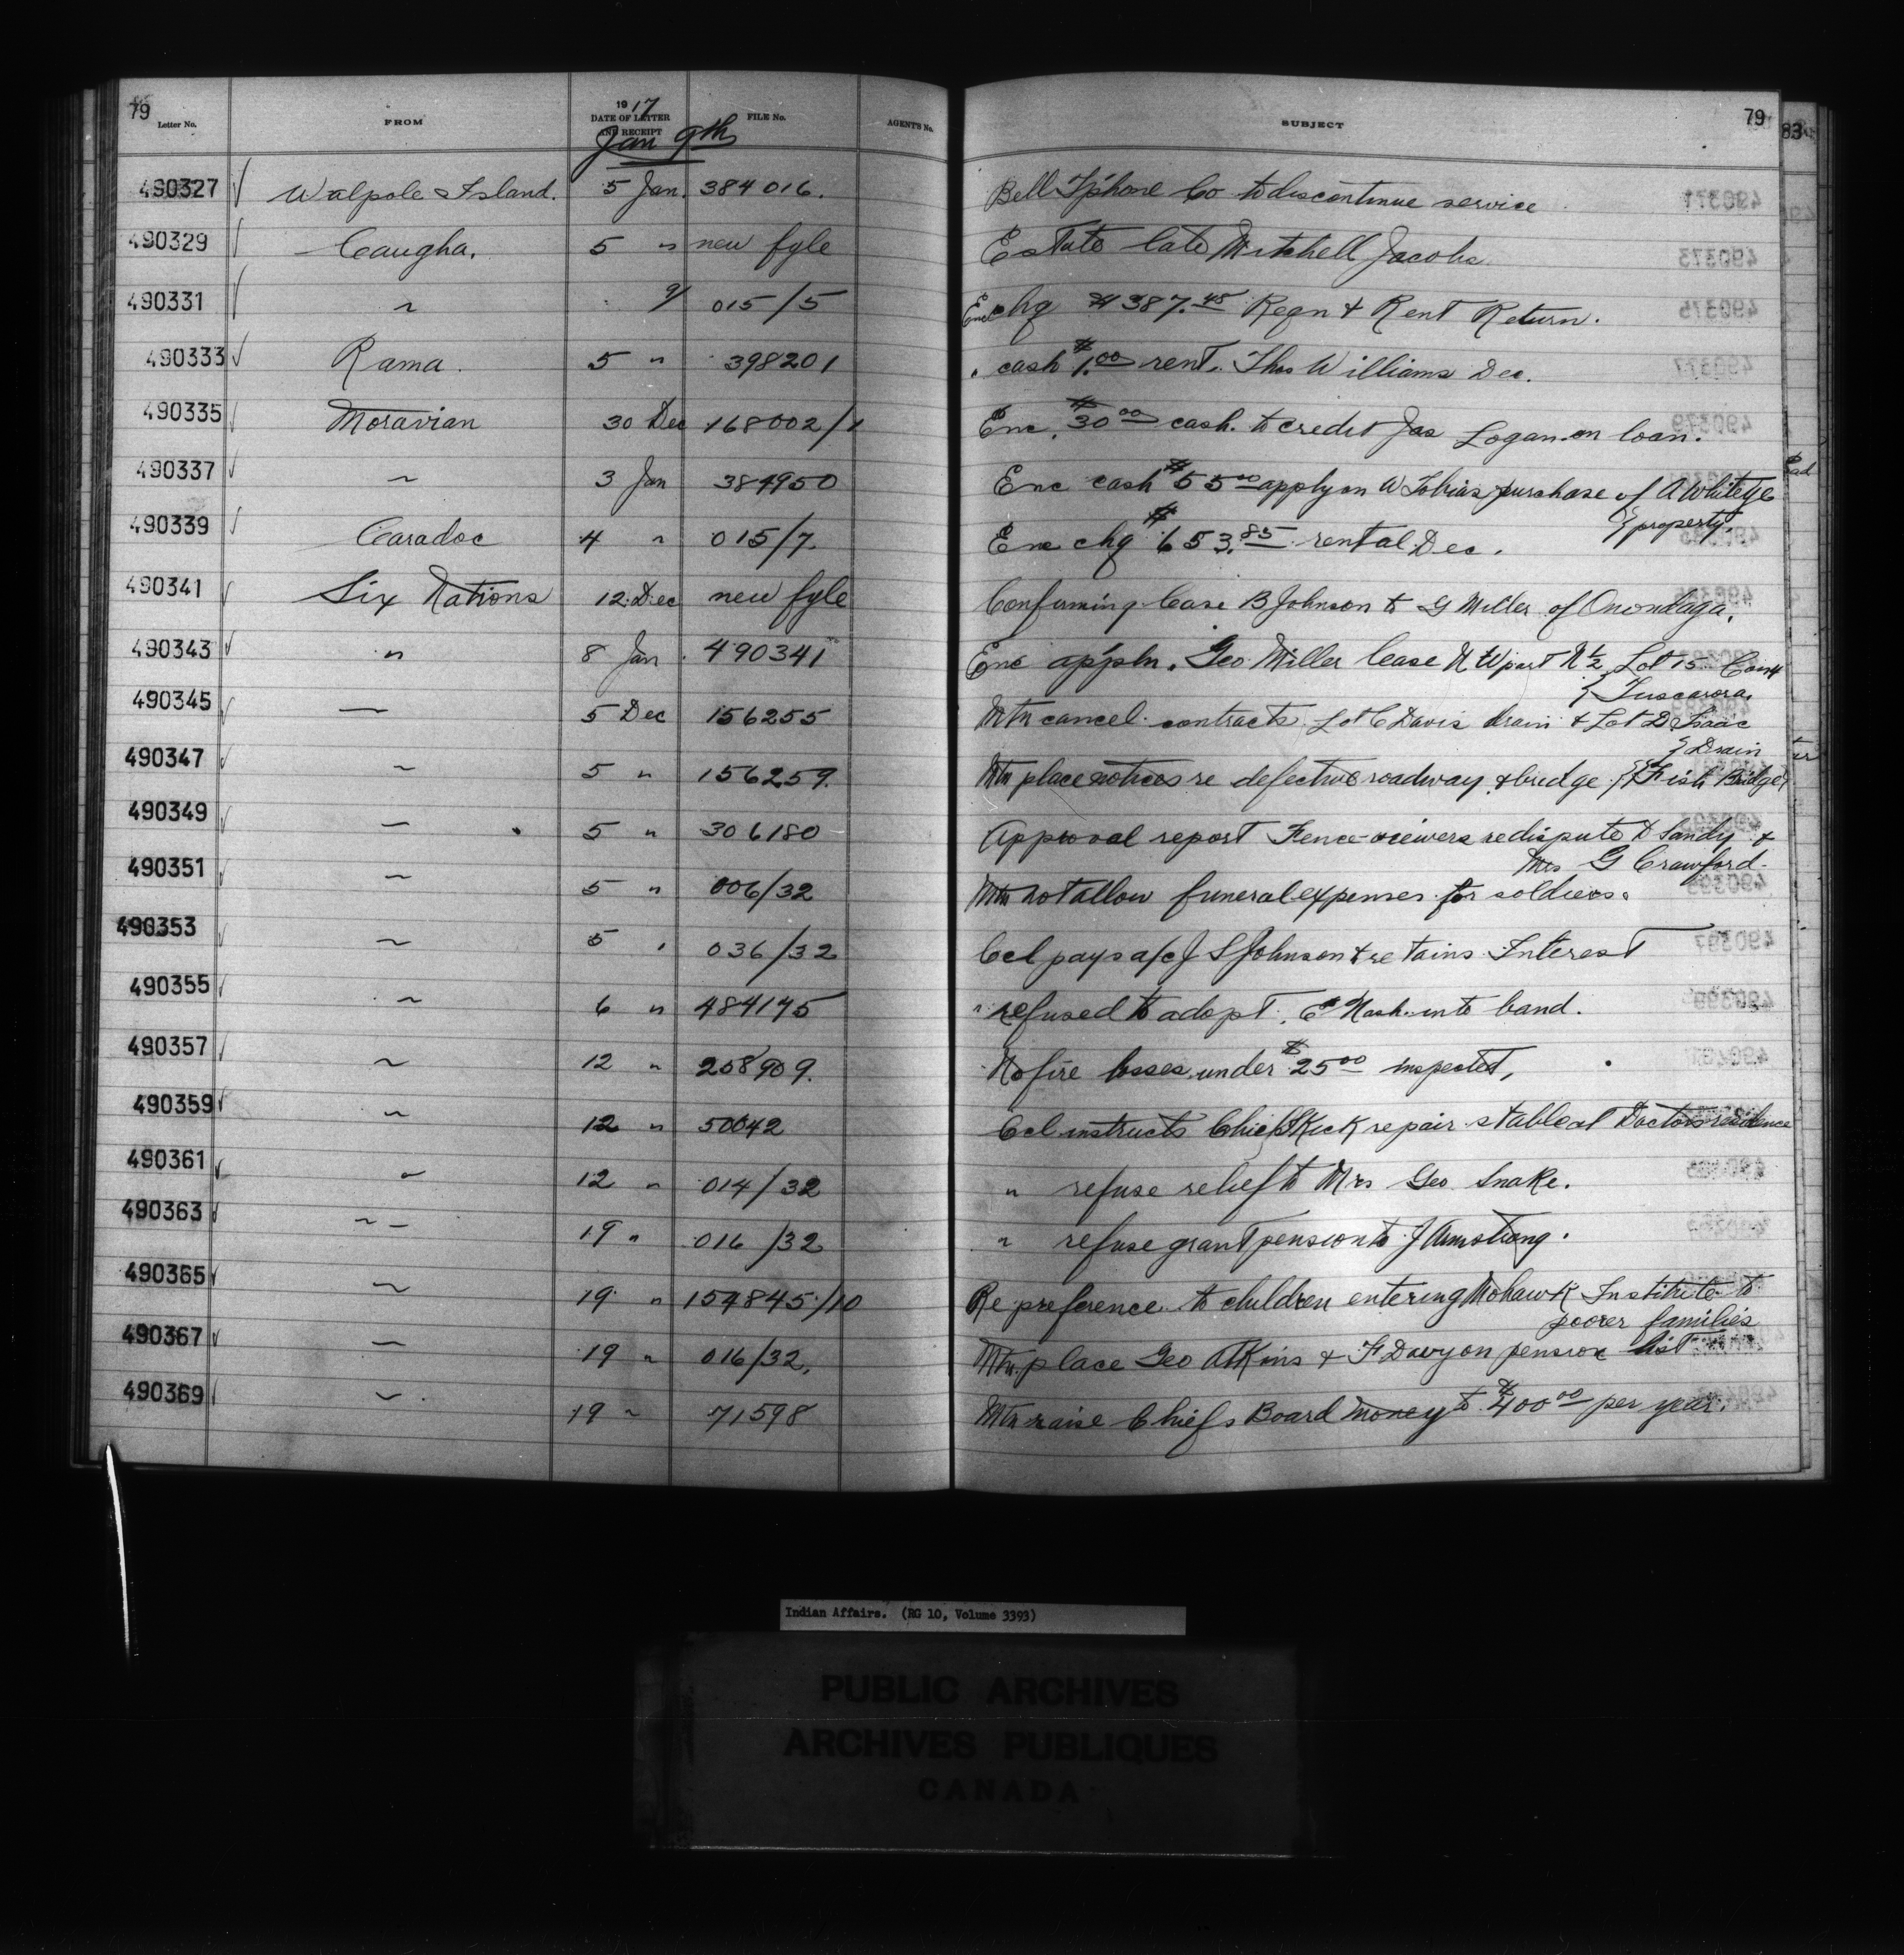 79
1917
Letter No. FROM DATE OF LETTER AND RECEIPT FILE No. AGENT'S No. SUBJECT 79
83
Jan 9th
490327 Walpole Island. 5 Jan. 384016. Bell T'phone Co to discontinue service
490329 Caugha. 5 " new fyle Estate late Mitchell Jacobs
490331 " 9/ 015/5 Enc chq $387.45 Reqn & Rent Return.
490333 Rama. 5 " 398201 " cash $1.00 rent. Thos Williams Dec.
490335 Moravian 30 Dec 168002/1 Enc. $30.00 cash. to credit Jas Logan on loan.
490337 " 3 Jan 384950 Enc cash $55.00 apply on W Tobias purchase of A Whiteye
} property.
490339 Caradoc 4 " 015/7. Enc chq $653.85 rental Dec.
490341 Six Nations 12 Dec new fyle Confirming lease B Johnson to G Miller of Onondaga.
490343 " 8 Jan. 490341 Enc app'ln. Geo Miller lease N W part N ½ Lot 15 Con 4
} Tuscarora.
490345 " 5 Dec 156255 Mtn cancel contracts Lot C Davis drain & Lot D Isaac
} Drain
490347 " 5 " 156259. Mtn place notices re defective roadway & bridge. } Fish Bridge}
490349 " 5 " 306180 Approval report Fence-viewers re dispute D Sandy &
Mrs G Crawford.
490351 " 5 " 006/32 Mtn not allow funeral expenses for soldiers.
490353 " 5 " 036/32 Ccl pays a/c J S Johnson & retains Interest
490355 " 6 " 484175 " refused to adopt. C Nash into band.
490357 " 12 " 258909. No fire losses under $25.00 inspected,
490359 " 12 " 50042 Ccl instructs Chief Kick repair stable at Doctors residence
490361 " 12 " 014/32 " refuse relief to Mrs Geo Snake.
490363 " 19 " 016/32 " refuse grant pension to J Armstrong.
490365 " 19 " 154845/10 Re preference to children entering Mohawk Institute to
poorer families
490367 " 19 " 016/32, Mtn. place Geo Atkins & F Davy on pension list
490369 " 19 " 71598 Mtn raise Chiefs Board money to $400.00 per year.
Indian Affairs. (RG 10, Volume 3393)
PUBLIC ARCHIVES
ARCHIVES PUBLIQUES
CANADA